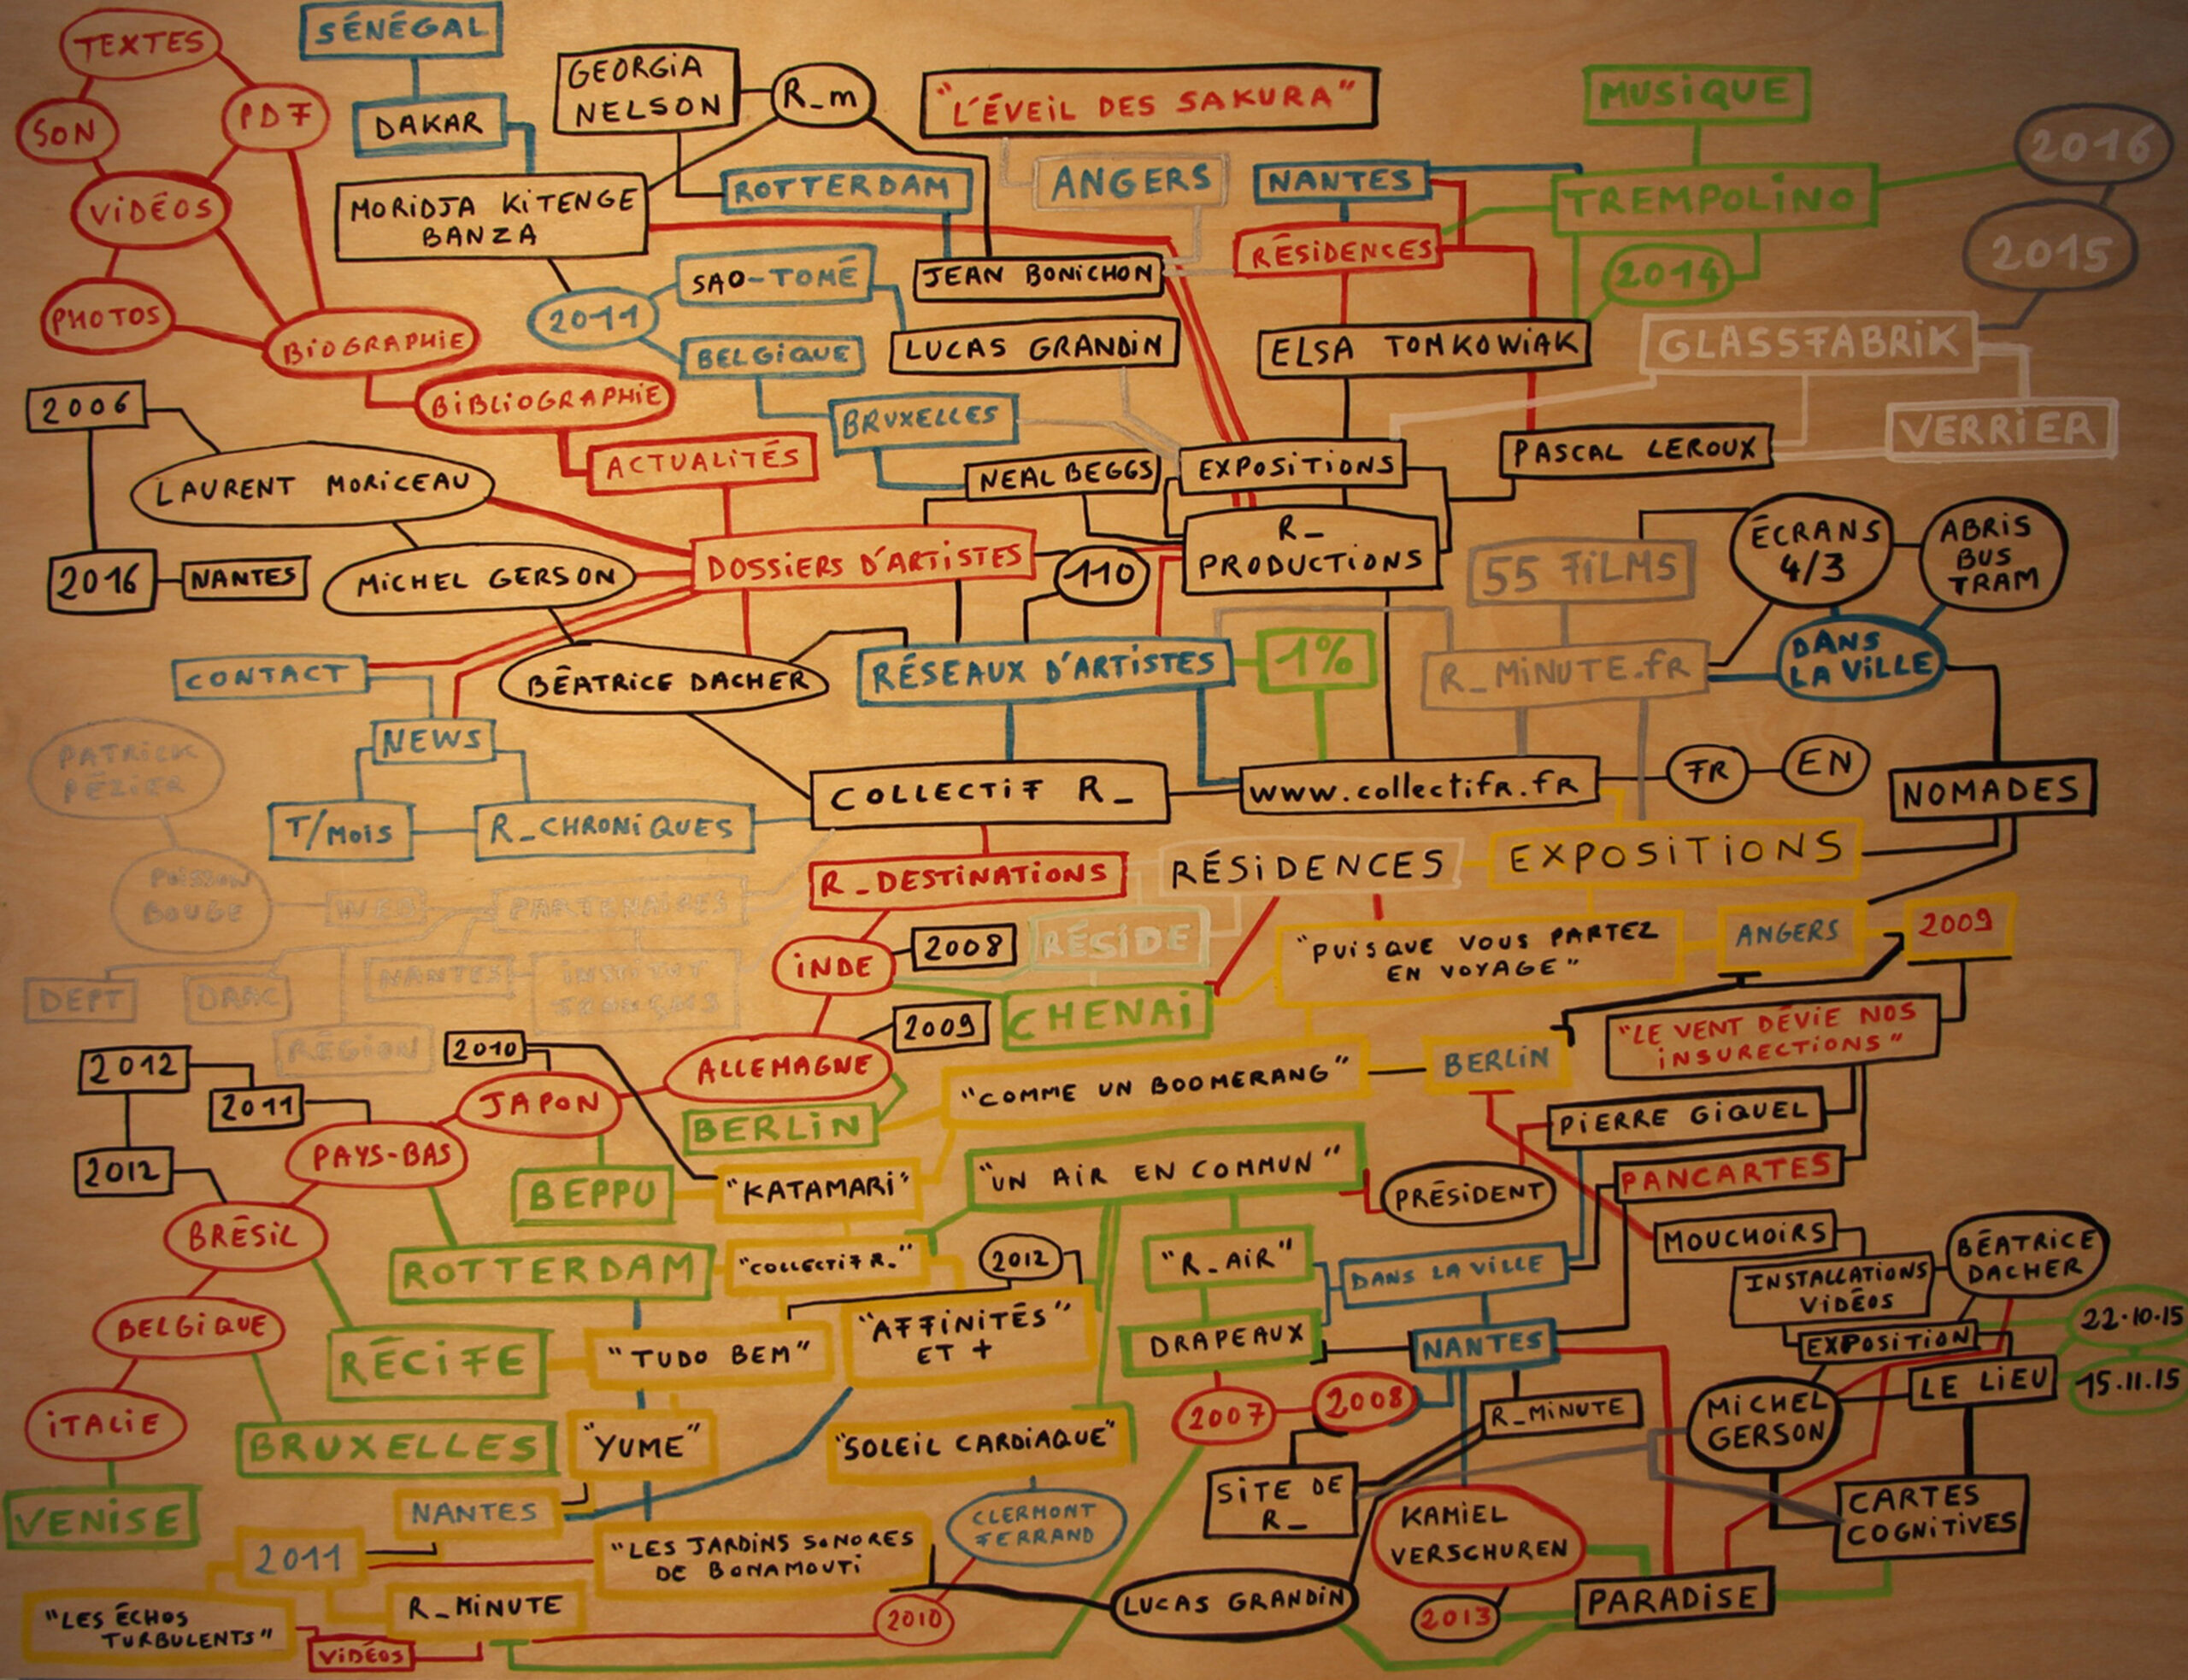 TEXTES
SÉNÉGAL
GEORGIA
NELSON
R_m
"L'ÉVEIL DES SAKURA"
MUSIQUE
SON
PDF
DAKAR
2016
VIDÉOS
MORIDJA KITENGE
BANZA
ROTTERDAM
ANGERS
NANTES
TREMPOLINO
2015
PHOTOS
2011
SAO-TOMÉ
JEAN BONICHON
RÉSIDENCES
2014
BIOGRAPHIE
BELGIQUE
LUCAS GRANDIN
ELSA TOMKOWIAK
GLASSFABRIK
2006
BIBLIOGRAPHIE
BRUXELLES
VERRIER
LAURENT MORICEAU
ACTUALITÉS
NEAL BEGGS
EXPOSITIONS
PASCAL LEROUX
2016
NANTES
MICHEL GERSON
DOSSIERS D'ARTISTES
110
R_
PRODUCTIONS
55 FILMS
ÉCRANS
4/3
ABRIS
BUS
TRAM
CONTACT
BÉATRICE DACHER
RÉSEAUX D'ARTISTES
1%
R_MINUTE.fR
DANS
LA VILLE
PATRICK
PÉZIER
NEWS
COLLECTIF R_
www.collectifr.fr
FR
EN
NOMADES
T/MOIS
R_CHRONIQUES
R_DESTINATIONS
RÉSIDENCES
EXPOSITIONS
POISSON
BOUGE
WEB
PARTENAIRES
INDE
2008
RÉSIDE
"PUISQUE VOUS PARTEZ
EN VOYAGE"
ANGERS
2009
DEPT
DRAC
NANTES
INSTITUT
FRANÇAIS
CHENAI
RÉGION
2010
2009
"LE VENT DÉVIE NOS
INSURECTIONS"
2012
2011
JAPON
ALLEMAGNE
"COMME UN BOOMERANG"
BERLIN
BERLIN
PIERRE GIQUEL
2012
PAYS-BAS
BEPPU
"KATAMARI"
"UN AIR EN COMMUN"
PRÉSIDENT
PANCARTES
BRÉSIL
ROTTERDAM
"COLLECTIF R_"
2012
"R_AIR"
DANS LA VILLE
MOUCHOIRS
BÉATRICE
DACHER
INSTALLATIONS
VIDÉOS
BELGIQUE
RÉCIFE
"TUDO BEM"
"AFFINITÉS"
ET +
DRAPEAUX
NANTES
EXPOSITION
22.10.15
ITALIE
BRUXELLES
"YUME"
"SOLEIL CARDIAQUE"
2007
2008
R_MINUTE
MICHEL
GERSON
LE LIEU
15.11.15
VENISE
NANTES
CLERMONT
FERRAND
SITE DE
R_
KAMIEL
VERSCHUREN
CARTES
COGNITIVES
2011
"LES JARDINS SONORES
DE BONAMOUTI
"LES ÉCHOS
TURBULENTS"
R_MINUTE
VIDÉOS
2010
LUCAS GRANDIN
2013
PARADISE